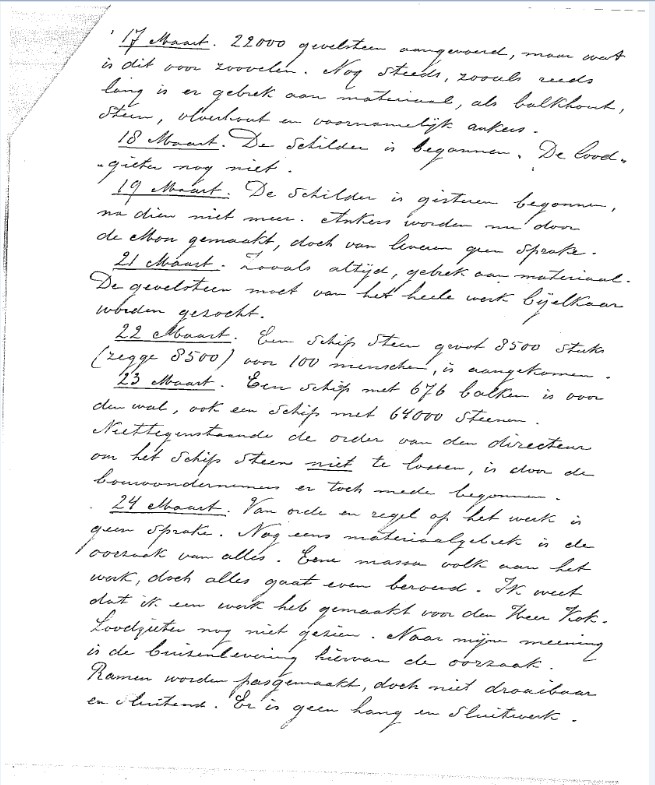 17 Maart. 22000 gevelsteen aangevoerd, maar wat
is dit voor zoovelen. Nog steeds, zooals reeds
lang is er gebrek aan materiaal, als balkhout,
steen, vloerhout en voornamelijk ankers.
18 Maart. De schilder is begonnen. De lood-
-gieter nog niet.
19 Maart. De schilder is gisteren begonnen,
na dien niet meer. Ankers worden nu door
de Mon gemaakt, doch van leveren geen sprake.
21 Maart. Zooals altijd, gebrek aan materiaal.
De gevelsteen moet van het heele werk bijelkaar
worden gezocht.
22 Maart. Een schip steen groot 8500 stuks
(zegge 8500) voor 100 menschen, is aangekomen.
23 Maart. Een schip met 676 balken is voor
den wal, ook een schip met 64000 steenen.
Niettegenstaande de order van den directeur
om het schip steen niet te lossen, is door de
bouwondernemers er toch mede begonnen.
24 Maart. Van orde en regel op het werk is
geen sprake. Nog eens materiaalgebrek is de
oorzaak van alles. Eene massa volk aan het
werk, doch alles gaat even beroerd. Ik weet
dat ik een werk heb gemaakt voor den Heer Kok.
Loodgieter nog niet gezien. Naar mijne meening
is de buizenlevering hiervan de oorzaak.
Ramen worden pasgemaakt, doch niet draaibaar
en sluitend. Er is geen hang en sluitwerk.